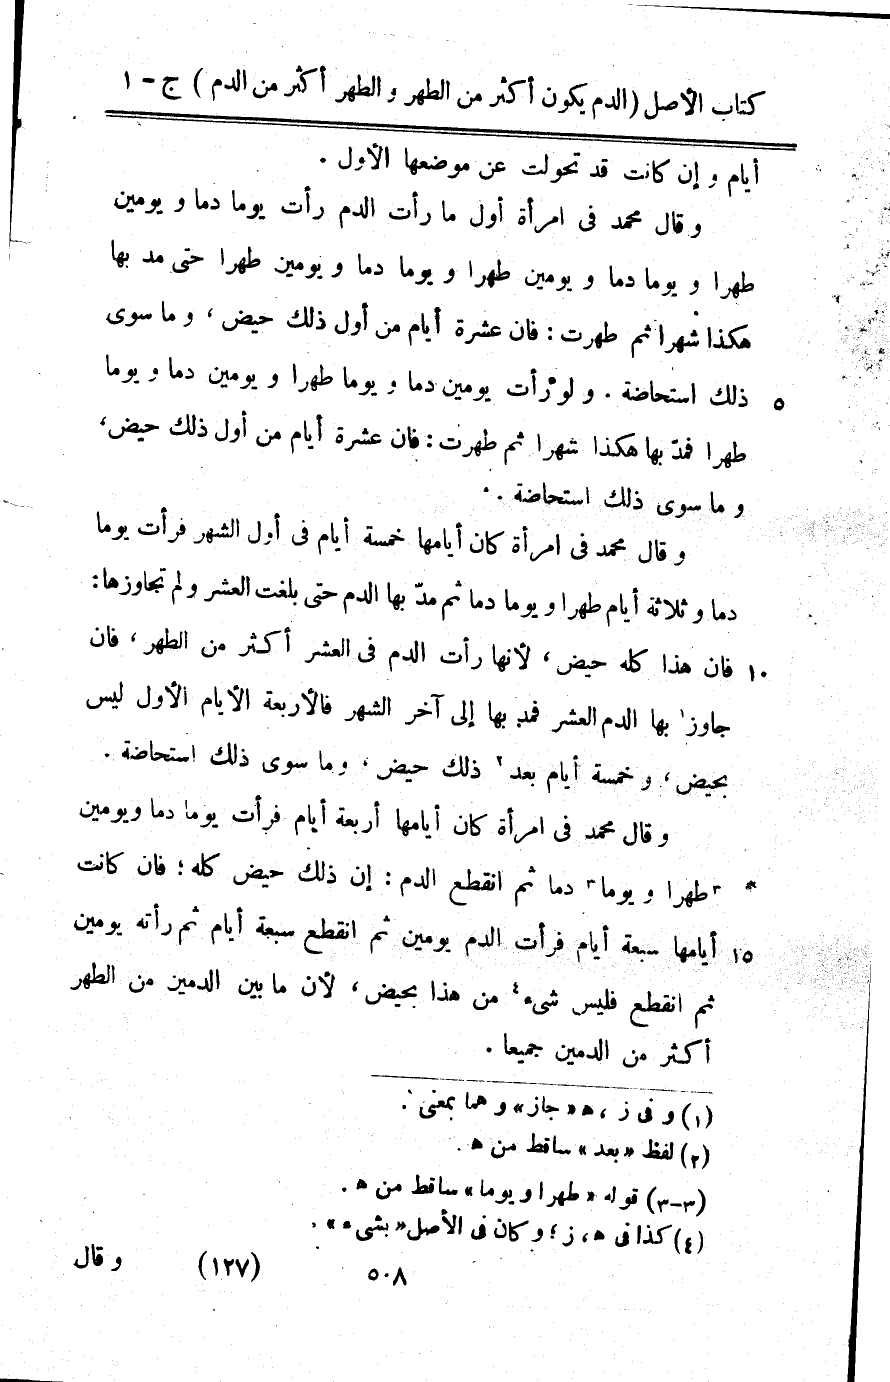 كتاب الأصل (الدم يكون أكثر من الطهر و الطهر أكثر من الدم) ج - ١
أيام و إن كانت قد تحولت عن موضعها الأول .
و قال محمد فى امرأة أول ما رأت الدم رأت يوما دما و يومين
طهرا و يوما دما و يومين طهرا و يوما دما و يومين طهرا حتى مد بها
هكذا شهرا ثم طهرت : فان عشرة أيام من أول ذلك حيض ، و ما سوى
٥ ذلك استحاضة . و لو رأت يومين دما و يوما طهرا و يومين دما و يوما
طهرا فمدّ بها هكذا شهرا ثم طهرت : فان عشرة أيام من أول ذلك حيض ،
و ما سوى ذلك استحاضة .
و قال محمد فى امرأة كان أيامها خمسة أيام فى أول الشهر فرأت يوما
دما و ثلاثة أيام طهرا و يوما دما ثم مدّ بها الدم حتى بلغت العشر و لم تجاوزها :
١٠ فان هذا كله حيض ، لأنها رأت الدم فى العشر أكثر من الطهر ، فان
جاوز١ بها الدم العشر فمد بها إلى آخر الشهر فالأربعة الأيام الأول ليس
بحيض ، و خمسة أيام بعد٢ ذلك حيض ، وما سوى ذلك استحاضة .
و قال محمد فى امرأة كان أيامها أربعة أيام فرأت يوما دما ويومين
* ٣طهرا و يوما٣ دما ثم انقطع الدم : إن ذلك حيض كله ؛ فان كانت
١٥ أيامها سبعة أيام فرأت الدم يومين ثم انقطع سبعة أيام ثم رأته يومين
ثم انقطع فليس شىء٤ من هذا بحيض ، لأن ما بين الدمين من الطهر
أكثر من الدمين جميعا .
(١) و فى ز ، ه « جاز » و هما بمعنى .
(٢) لفظ « بعد » ساقط من ه .
(٣-٣) قوله « طهرا و يوما » ساقط من ه .
(٤) كذا فى ه ، ز ؛ و كان فى الأصل « بشىء » .
٥٠٨ (١٢٧) و قال